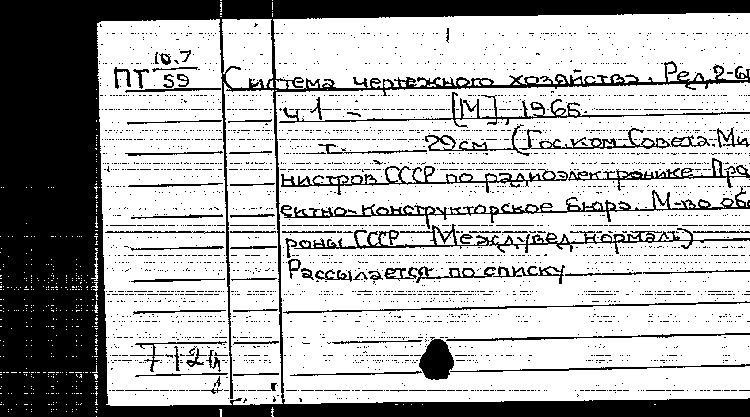 ПТ 10.7/59 Система чертежного хозяйства. Ред. 2-
ч.1 - [М], 1965.
т. 29см (Гос.ком.Совета.Ми
нистров СССР по радиоэлектронике. Про
ектно-конструкторское бюро. М-во обо
роны СССР. Междувед. нормаль).
Рассылается по списку